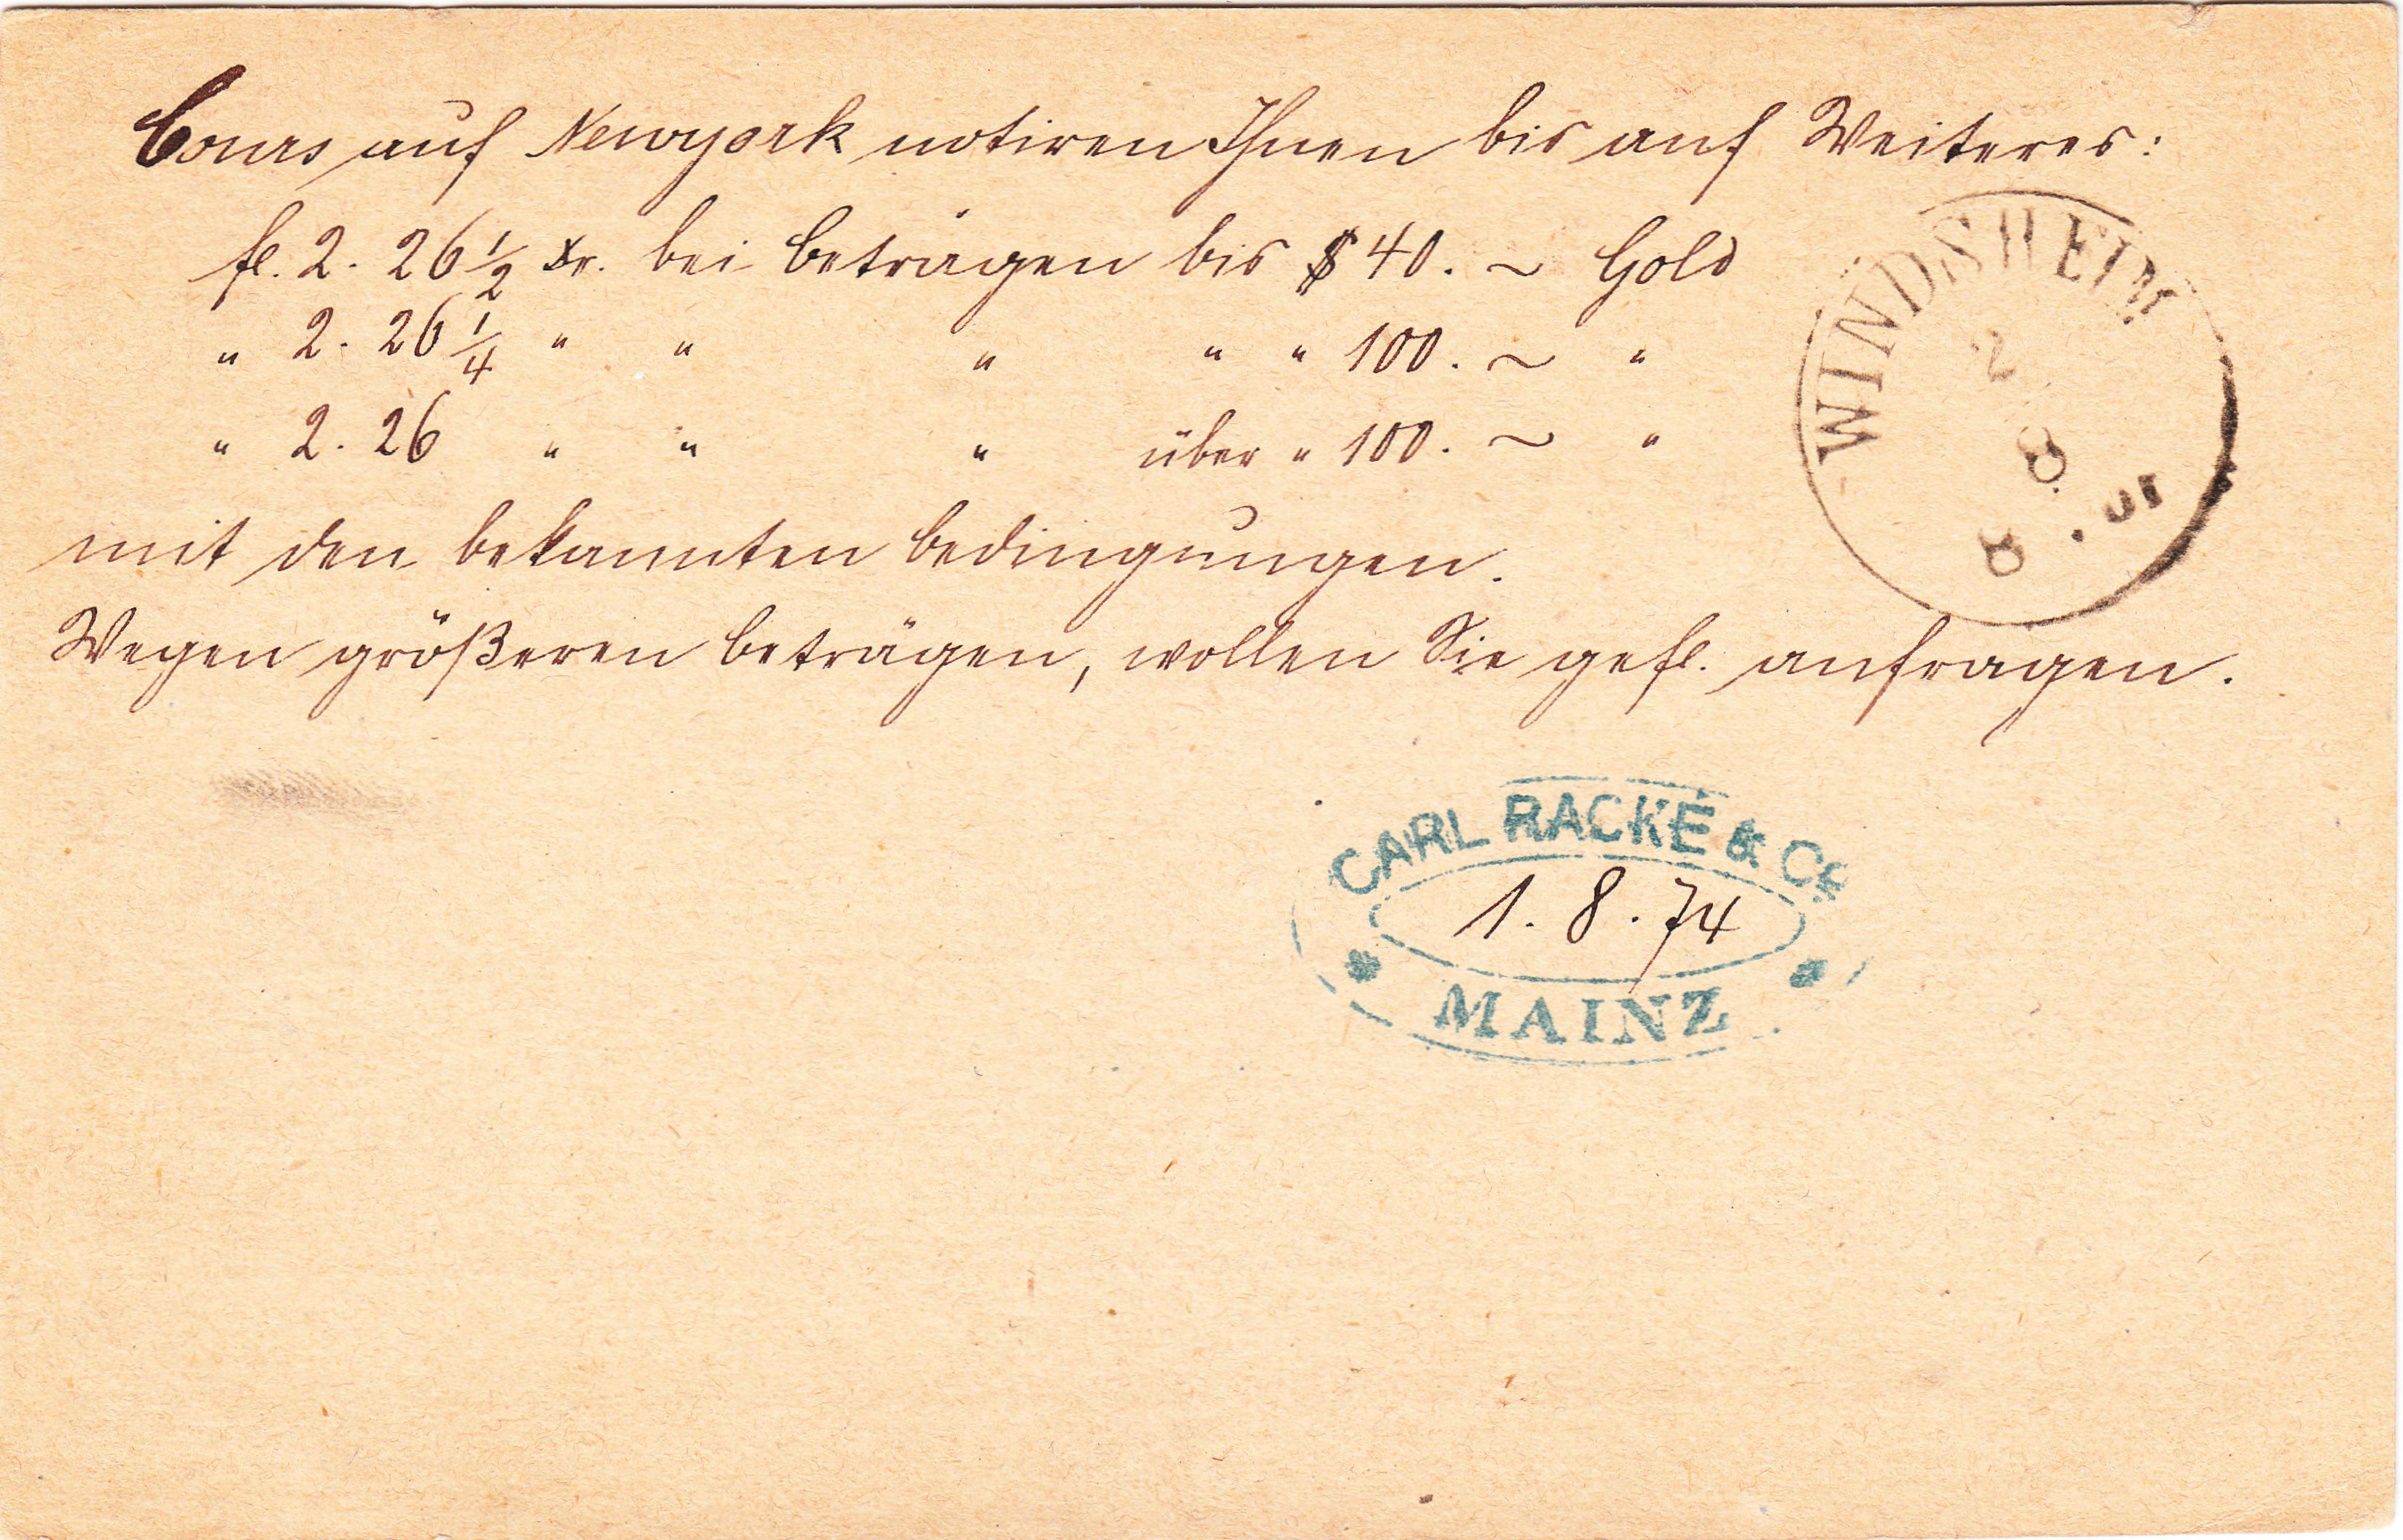 Cours auf Newyork notiren Ihnen bis auf Weiteres:
fl. 2. 26 1/2 Xr. bei Beträgen bis $ 40. ~ Gold
" 2. 26 1/4 " " " " " 100. ~ "
" 2. 26 " " " über " 100. ~ "
mit den bekannten Bedingungen.
Wegen größeren Beträgen, wollen Sie gefl. anfragen.
WINDSHEIM
2
8
CARL RACKÉ & Co
1. 8. 74
MAINZ